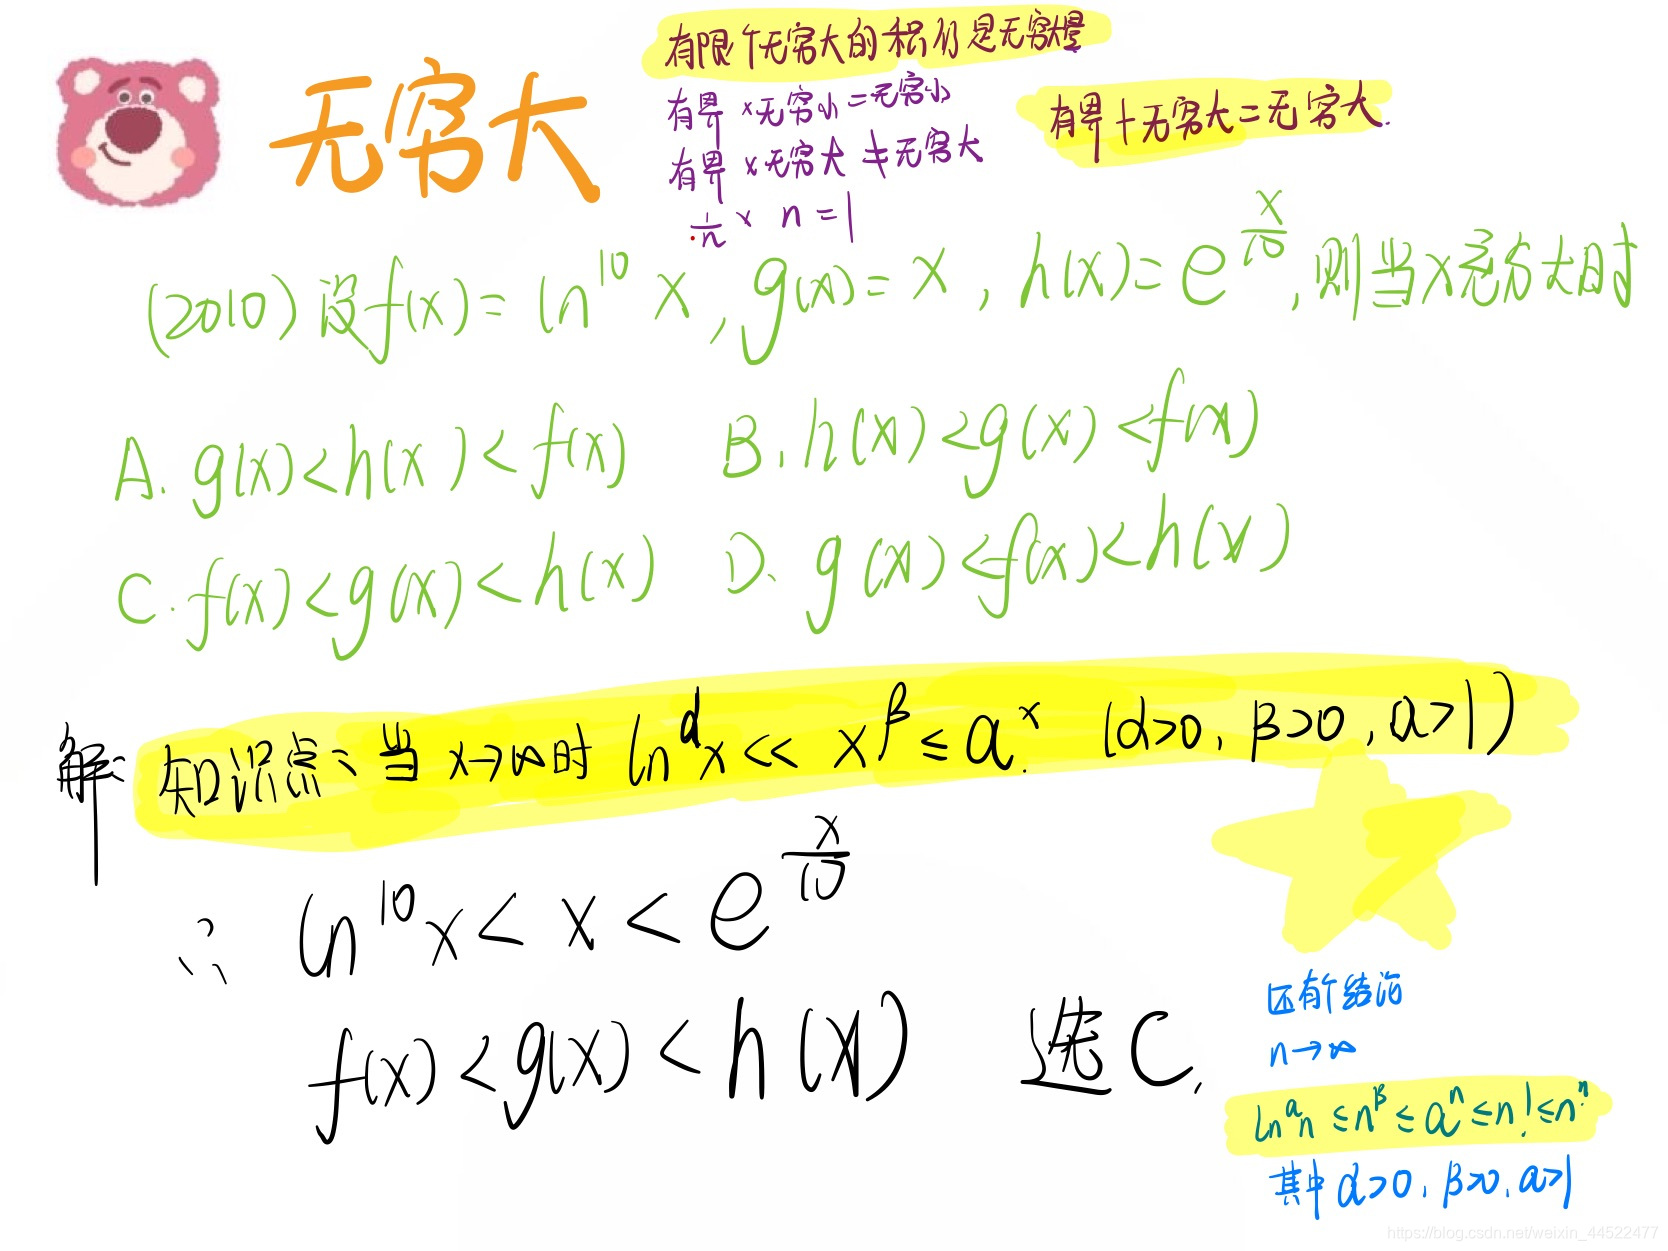 无穷大
有限个无穷大的积仍是无穷大量
有界×无穷小=无穷小
有界×无穷大≠无穷大
1/n × n = 1
有界+无穷大=无穷大.
(2010) 设f(x)=ln¹⁰x, g(x)=x, h(x)=e^(x/10), 则当x充分大时
A. g(x)<h(x)<f(x) B. h(x)<g(x)<f(x)
C. f(x)<g(x)<h(x) D. g(x)<f(x)<h(x)
解: 知识点: 当x→∞时 ln^α x << x^β ≤ a^x (α>0, β>0, a>1)
∴ ln¹⁰x < x < e^(x/10)
f(x)<g(x)<h(x) 选C.
还有个结论
n→∞
ln^a n ≤ n^β ≤ a^n ≤ n! ≤ n^n
其中 α>0, β>0, a>1
https://blog.csdn.net/weixin_44522477